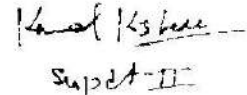 Kamal Kishore
Supdt-II